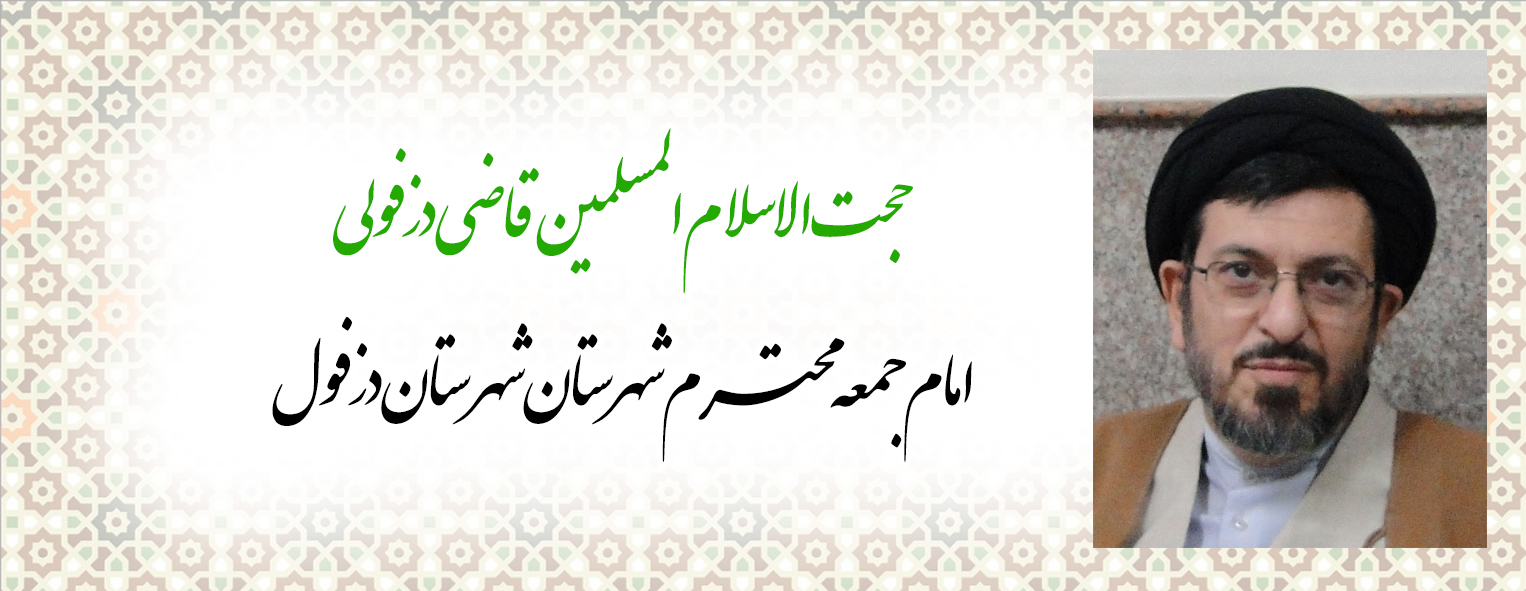 حجت الاسلام المسلمین قاضی دزفولی
امام جمعه محترم شهرستان شهرستان دزفول